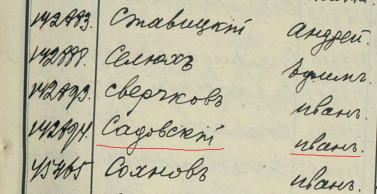 142883. Ставицкій Андрей.
142888. Селюхъ Ефимъ.
142893. Сверчковъ Иванъ.
142894. Садовскій Иванъ.
45465 Сохновъ Иванъ.